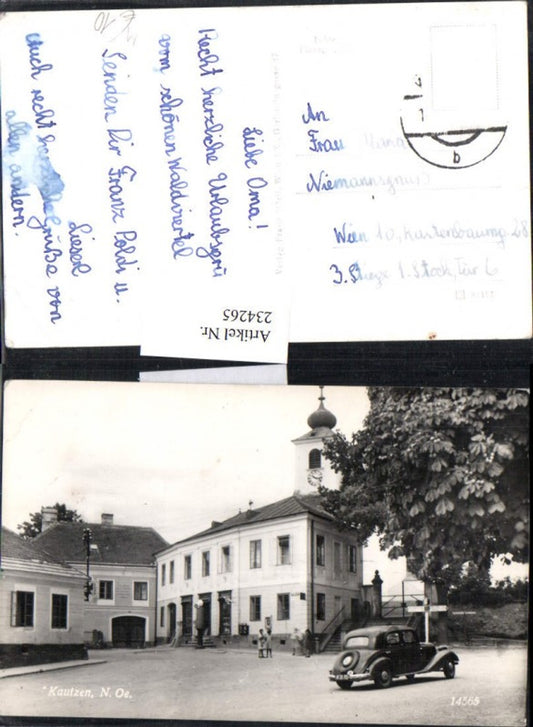 Liebe Oma!
Recht herzliche Urlaubsgrü
vom schönen Waldviertel
Senden Dir Franz Poldi u.
Liesel
Auch recht Grüße von
allen andern.
10
An
Frau Maria
Wien 10.,
3. Stiege 1. Stock, Tür 6
b
Artikel Nr.
234265
Kautzen, N. Oe.
14565